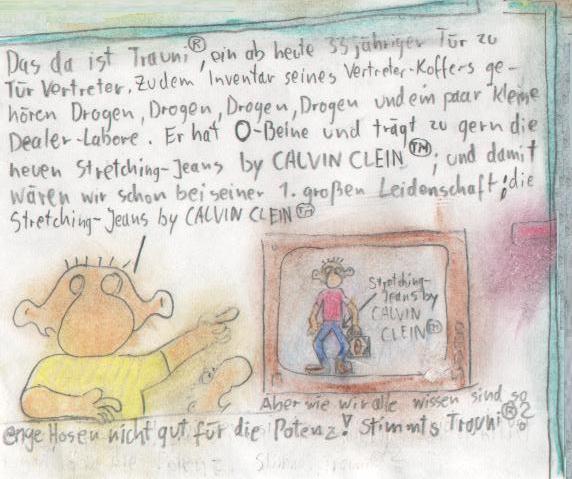 Das da ist Trauni®, ein ab heute 33 jähriger Tür zu
Tür Vertreter. Zu dem Inventar seines Vertreter-Koffers ge-
hören Drogen, Drogen, Drogen, Drogen und ein paar kleine
Dealer-Labore. Er hat O-Beine und trägt zu gern die
neuen Stretching-Jeans by CALVIN CLEIN™; und damit
wären wir schon bei seiner 1. großen Leidenschaft; die
Stretching-Jeans by CALVIN CLEIN™
Stretching-
Jeans by
CALVIN
CLEIN™
Aber wie wir alle wissen sind so
enge Hosen nicht gut für die Potenz! Stimmts Trauni®?